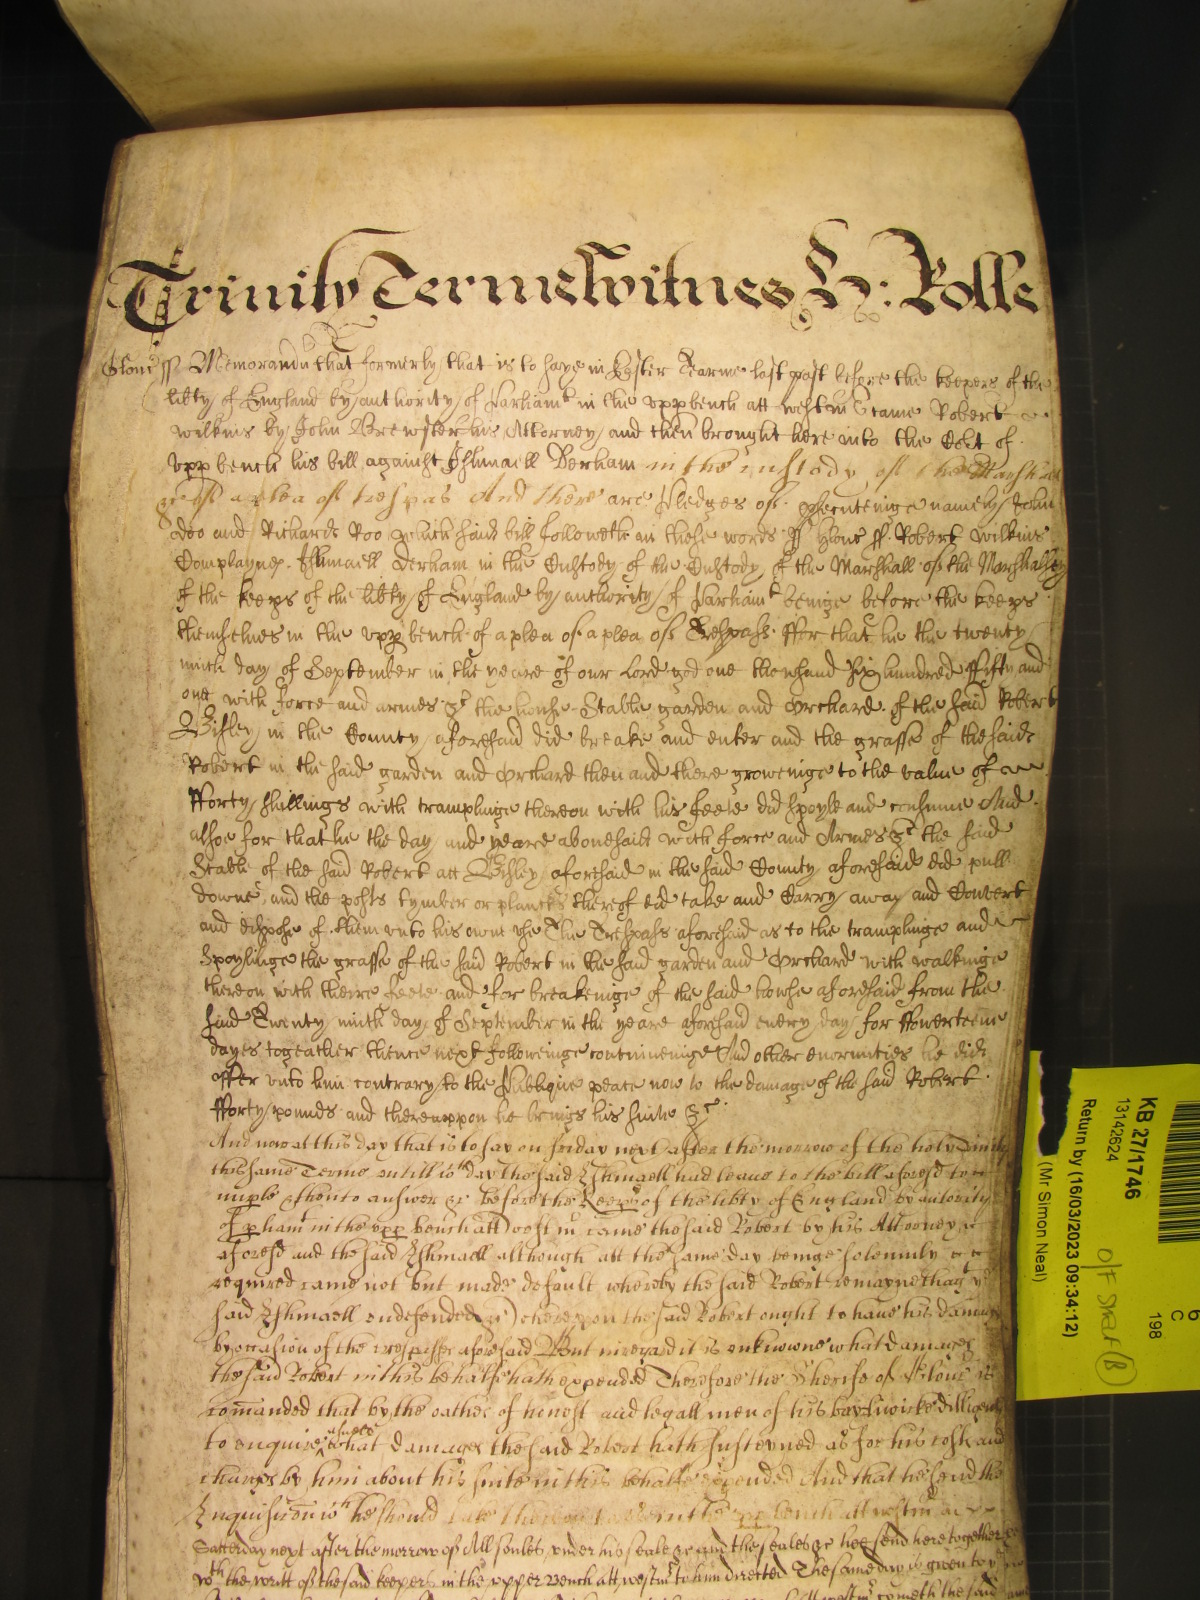 Trinity Terme Witnes H: Rolle
Glouc ss Memorandu that formerly that is to saye in Easter Tearme last past before the keepers of the
libty of England by authority of Parliamt in the uppbench att Westm came Robert
Wilkins by John Brewster his Attorney and then brought here into the Cort of
upp bench his bill against Ishmaell Derham in the custody of the Marshall
&c of a plea of trespas And there are Pledges of psecuteinge namely John
Doo and Richard Roo which said bill followeth in these words ss Glouc ss Robert Wilkins
Complaynes Ishmaell Derham in the Custody of the Custody of the Marshall of the Marshalsey
of the keeps of the libty of England by authority of Parliamt beinge before the keeps
themselves in the upp bench of a plea of a plea of Trespass ffor that he the twenty
ninth day of September in the yeare of our Lord god one thousand six hundred ffifty and
one with force and armes &c the house Stable garden and Orchard of the said Robert
Bisley in the County aforesaid did breake and enter and the grasse of the said
Robert in the said garden and Orchard then and there groweinge to the value of
fforty shillings with tramplinge thereon with his feete did spoyle and consume And
alsoe for that he the day and yeare abovesaid with force and Armes &c the said
Stable of the said Robert att Bisley aforesaid in the said County aforesaid did pull
downe and the posts tymber or plancks thereof did take and Carry away and Convert
and dispose of them unto his owne use The Trespass aforesaid as to the tramplinge and
Spoylinge the grasse of the said Robert in the said garden and Orchard with walkinge
thereon with theire feete and for breakeinge of the said house aforesaid from the
said Twenty ninth day of September in the yeare aforesaid every day for ffowerteene
dayes togeather thence next followeinge contineuinge And other enormities he did
offer unto him contrary to the Publique peace now to the damage of the said Robert
fforty pounds and thereuppon he brings his suite &c
And now at this day that is to say on friday next after the morrow of the holy Trinity
this same Terme untill wch day the said Ishmaell had leave to the bill aforesd to
imple & then to answer &c before the Keeps of the libty of England by autority
of pliamt in the upp bench att Westm came the said Robert by his Attorney
aforesd and the said Ishmaell although att the same day beinge solemnly
required came not but made default whereby the said Robert remayneth agt ye
said Ishmaell undefended &c) whereupon the said Robert ought to have his damages
by occasion of the trespasse aforesaid But in regard it is unknowne what damages
the said Robert in this behalfe hath expended Therefore the Sherife of Glouc is
comanded that by the oathes of honest and legall men of his baylwicke dilligently
to enquire aswell what damages the said Robert hath susteyned as for his costs and
charges by him about his suite in this behalfe expended And that he send the
Inquisicon wch he should take thereon to them in the upp bench att westm on
Satterday next after the morrow of All soules under his seale &c and the seales &c hee send here together
wth the writt of the said keepers in the upper bench att westmr to him directed The same day is given to ye
KB 27/1746
13142624
Return by (16/03/2023 09:34:12)
(Mr Simon Neal)
198
C
6
O/F Shelf (B)